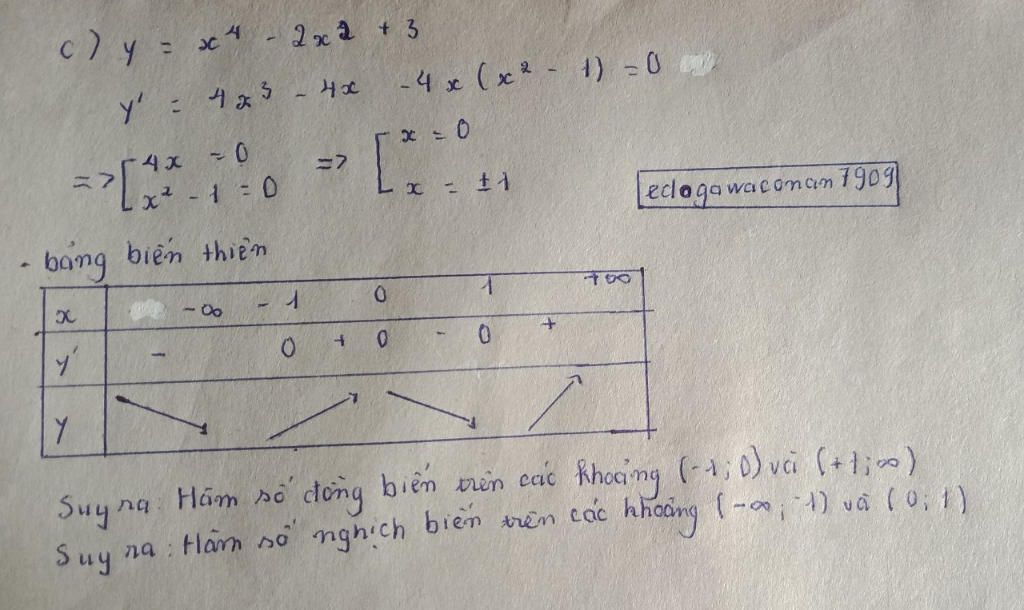 c) y = x⁴ - 2x² + 3
y' = 4x³ - 4x - 4x(x² - 1) = 0
=> [ 4x = 0 => [ x = 0
x² - 1 = 0 x = ±1
edogawaconan7909
- bảng biến thiên
x -∞ -1 0 1 +∞
y' - 0 + 0 - 0 +
y ↘ ↗ ↘ ↗
Suy ra: Hàm số đồng biến trên các khoảng (-1; 0) và (+1; ∞)
Suy ra: Hàm số nghịch biến trên các khoảng (-∞; -1) và (0; 1)